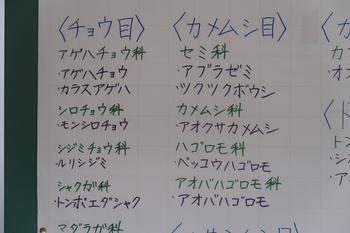 〈チョウ目〉
アゲハチョウ科
・アゲハチョウ
・カラスアゲハ
シロチョウ科
・モンシロチョウ
シジミチョウ科
・ルリシジミ
シャクガ科
・トンボエダシャク
マダラガ科
〈カメムシ目〉
セミ科
・アブラゼミ
・ツクツクボウシ
カメムシ科
・アオクサカメムシ
ハゴロモ科
・ベッコウハゴロモ
アオバハゴロモ科
・アオバハゴロモ